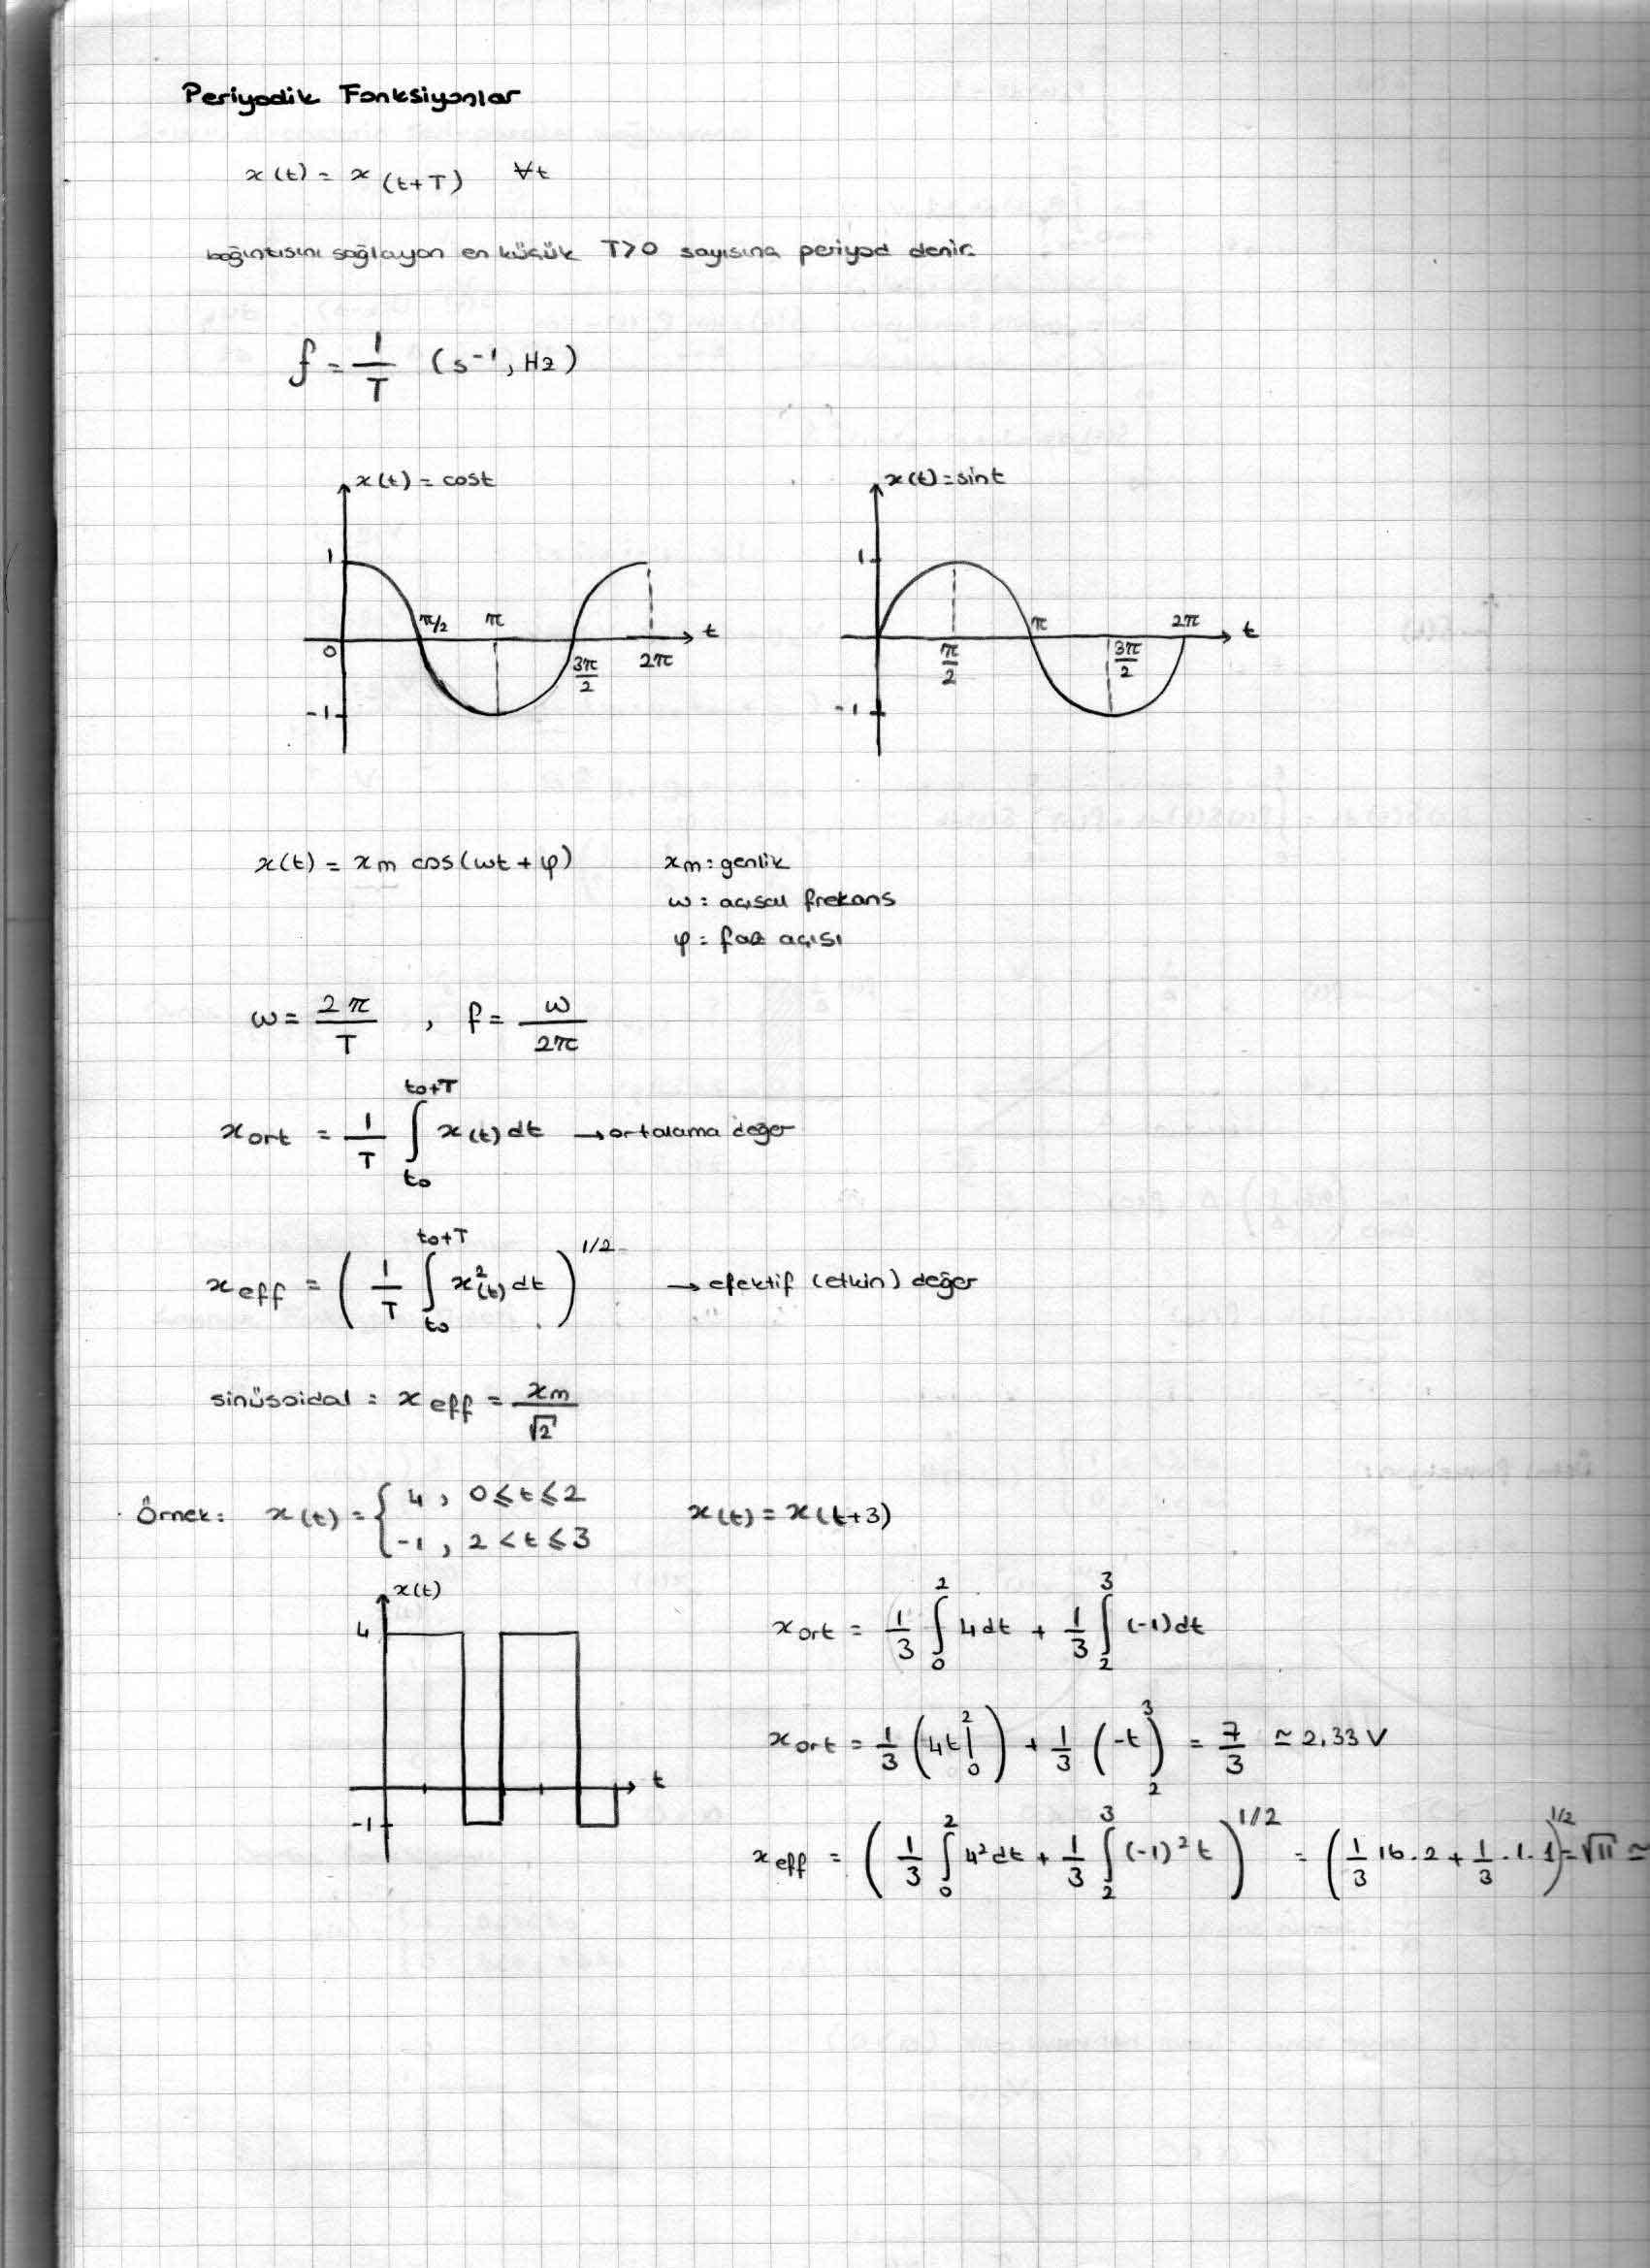 Periyodik Fonksiyonlar
x(t) = x(t+T) ∀t
bağıntısını sağlayan en küçük T>0 sayısına periyod denir.
f = 1/T (s⁻¹, Hz)
x(t) = cost
1
π/2 π
t
0
3π/2 2π
-1
x(t)=sint
1
π 2π
t
π/2 3π/2
-1
x(t) = xm cos(ωt + φ) xm: genlik
ω: açısal frekans
φ = faz açısı
ω = 2π/T , f = ω/2π
xort = 1/T ∫_{t0}^{t0+T} x(t) dt → ortalama değer
xeff = ( 1/T ∫_{t0}^{t0+T} x²(t) dt )^{1/2} → efektif (etkin) değer
sinüsoidal : xeff = xm/√2
Örnek: x(t) = { 4 , 0 ≤ t ≤ 2
-1 , 2 < t ≤ 3
x(t) = x(t+3)
x(t)
4
t
-1
xort = 1/3 ∫_0^2 4dt + 1/3 ∫_2^3 (-1)dt
xort = 1/3 (4t|_0^2) + 1/3 (-t)_2^3 = 7/3 ≃ 2.33 V
xeff = ( 1/3 ∫_0^2 4² dt + 1/3 ∫_2^3 (-1)² t )^{1/2} = ( 1/3 16.2 + 1/3 .1.1 )^{1/2} = √11 ≃